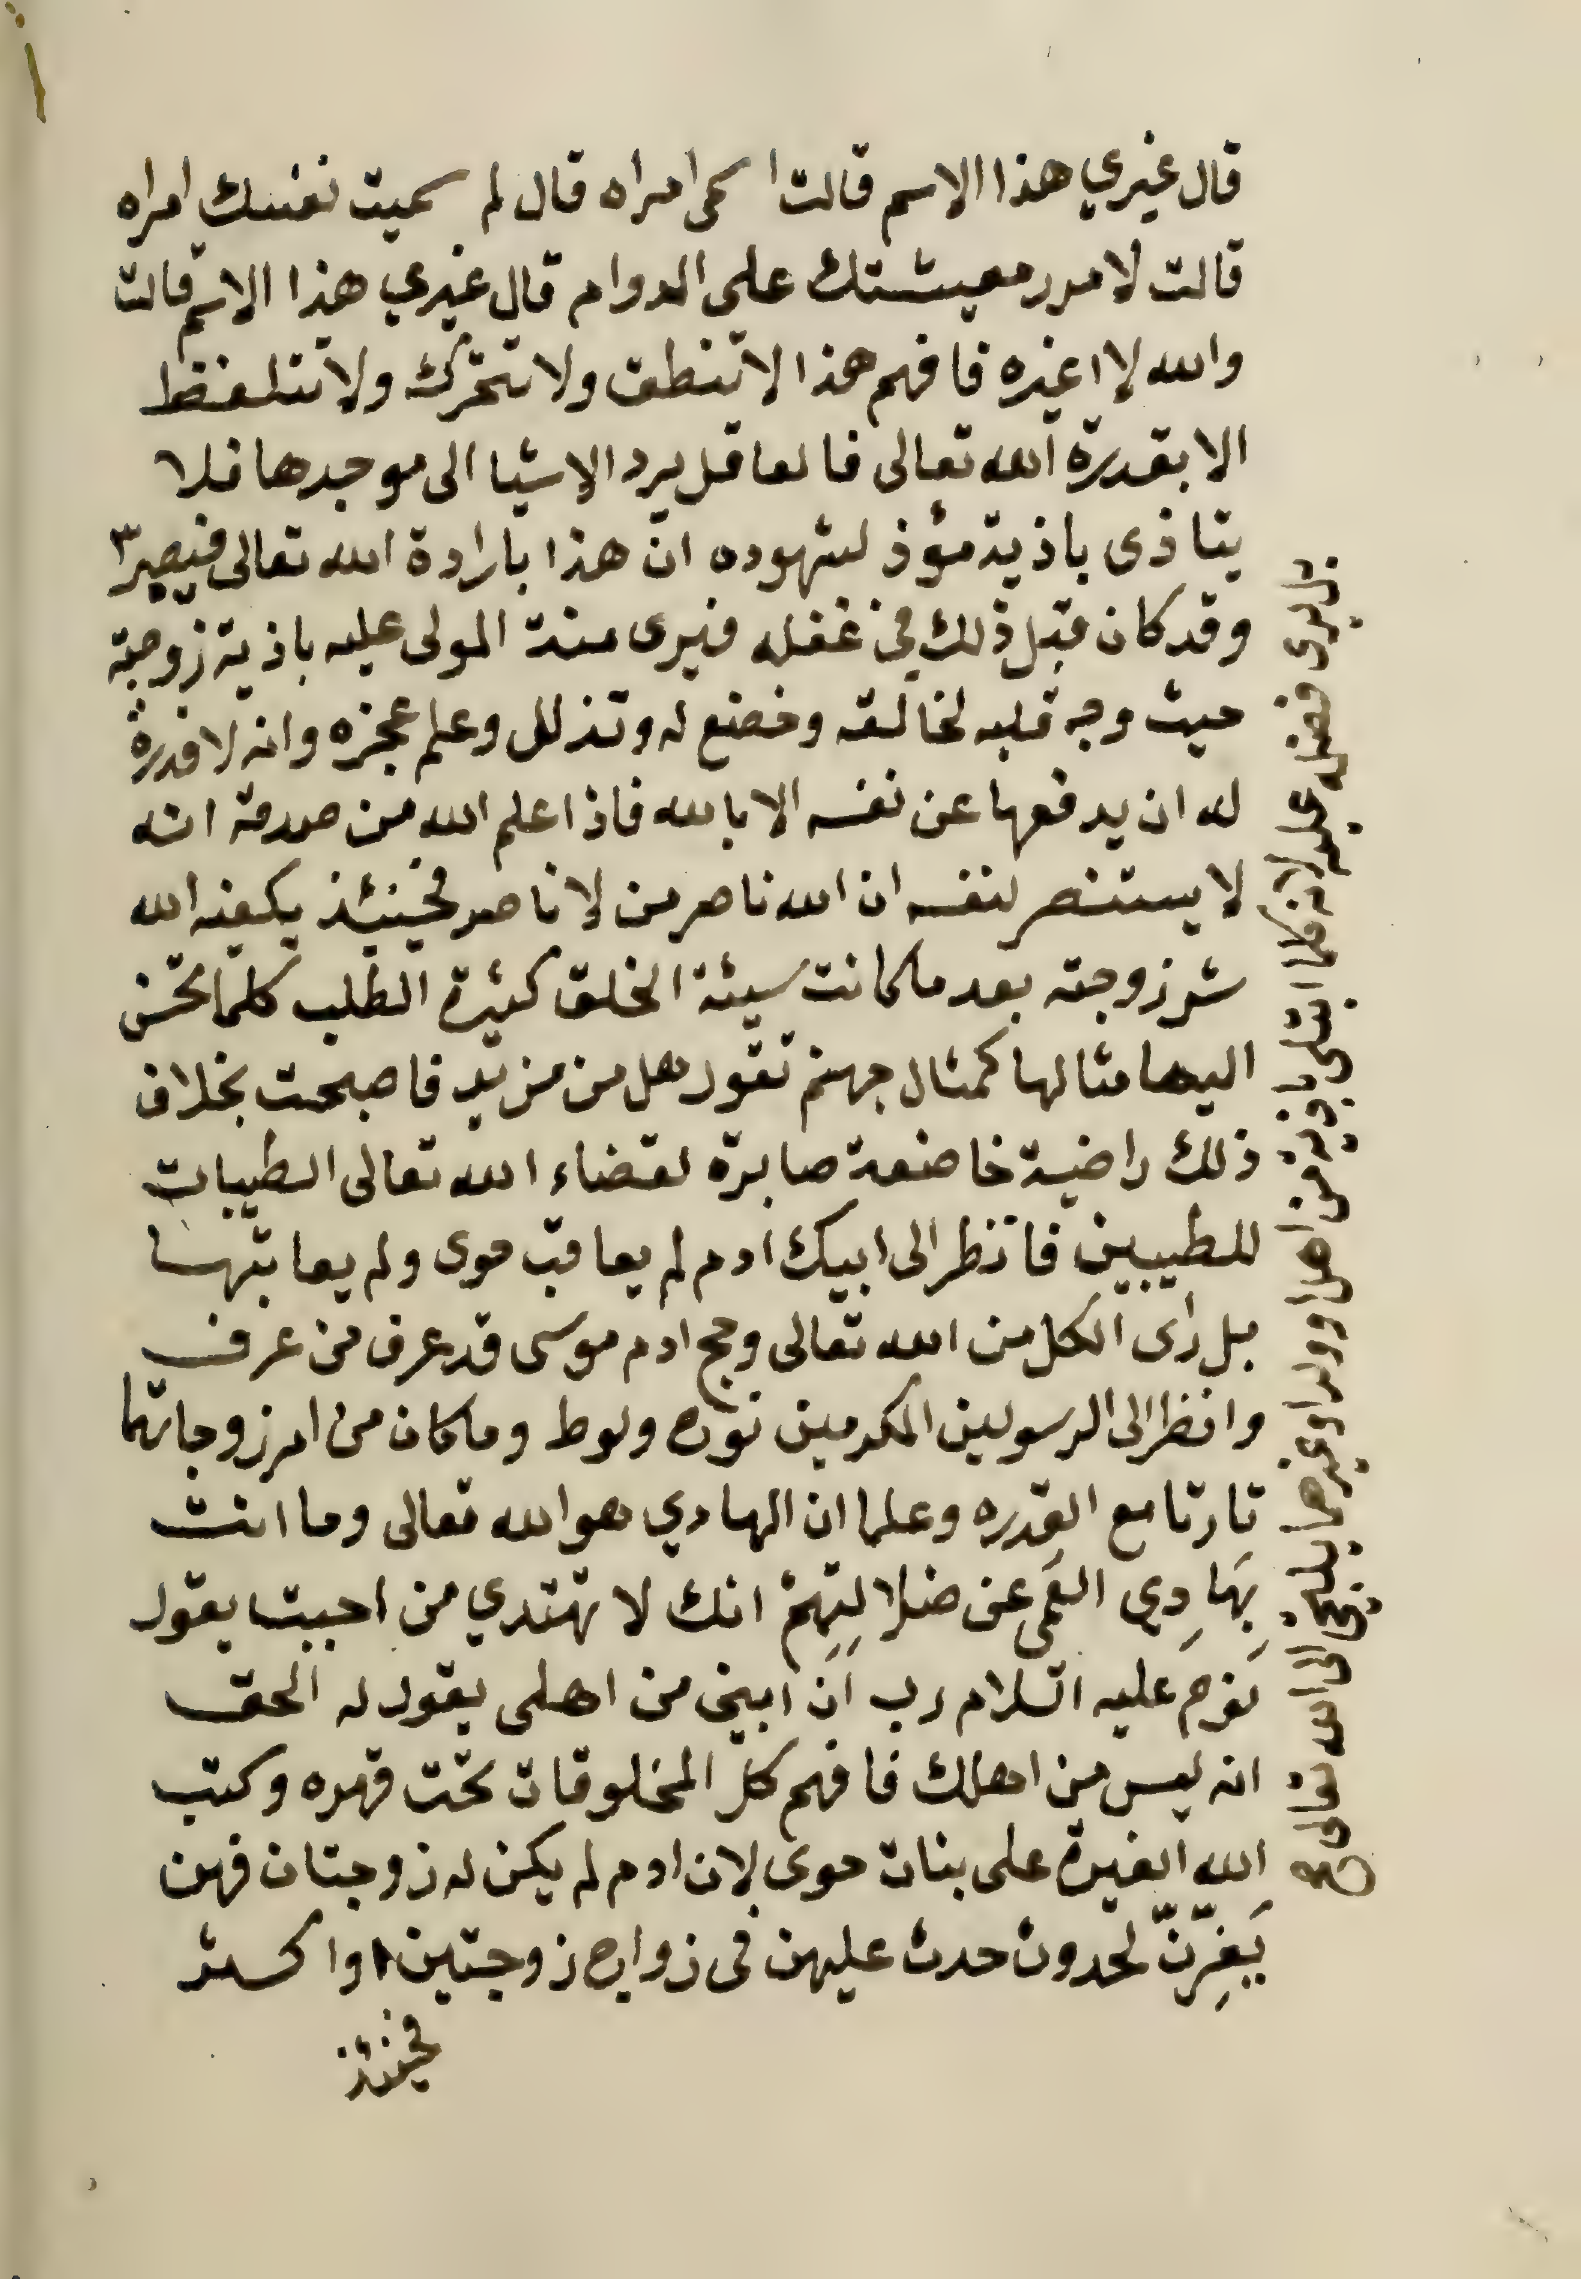 قال غيري هذا الاسم قالت اسمى امراه قال لم سميت نفسك امراه
قالت لامرر معيشتك على الدوام قال غيري هذا الاسم قالت
والله لا اغيره فافهم هذا لا تنطق ولا تتحرك ولا تتلفظ
الا بقدرة الله تعالى فالعاقل يرد الاشيا الى موجدها فلا
يتاذى باذية مؤذ لشهوده ان هذا بارادة الله تعالى فيصير
وقد كان قبل ذلك في غفله فيرى منة المولى عليه باذية زوجته
حيث وجه قلبه لخالقه وخضع له وتذلل وعلم عجزه وانه لا قدرة
له ان يدفعها عن نفسه الا بالله فاذا علم الله من صدقه انه
لا يستنصر لنفسه ان الله ناصر من لا ناصر فحينئذ يكفيه الله
شر زوجته بعد ما كانت سيئة الخلق كثيرة الطلب كلما تحسن
اليها مثالها كمثال جهنم تقول هل من مزيد فاصبحت بخلاف
ذلك راضية خاضعة صابرة لقضاء الله تعالى الطيبات
للطيبين فانظر الى ابيك ادم لم يعاقب حوى ولم يعاتبها
بل راى الكل من الله تعالى وحج ادم موسى قد عرف من عرف
وانظر الى الرسولين المكرمين نوح ولوط وما كان من امر زوجاتهما
تارتا مع القدره وعلما ان الهادي هو الله تعالى وما انت
بِهَادِي العُمي عن ضلالتِهِمْ انك لا تهتدي من احببت يقول
نوح عليه السلام رب ان ابني من اهلى يقول له الحق
انه ليس من اهلك فافهم كل المخلوقات تحت قهره وكتب
الله الغيرة على بنات حوى لان ادم لم يكن له زوجتان فهن
يَغِرْنّ لحدوث حدث عليهن في زواج زوجتين او اكثر
فحينئذ
بل يرى فضله عليه لانه كلما ابتلى باذية من اهل او ولد او غيرهما يلتجئ الى الله تعالى صح